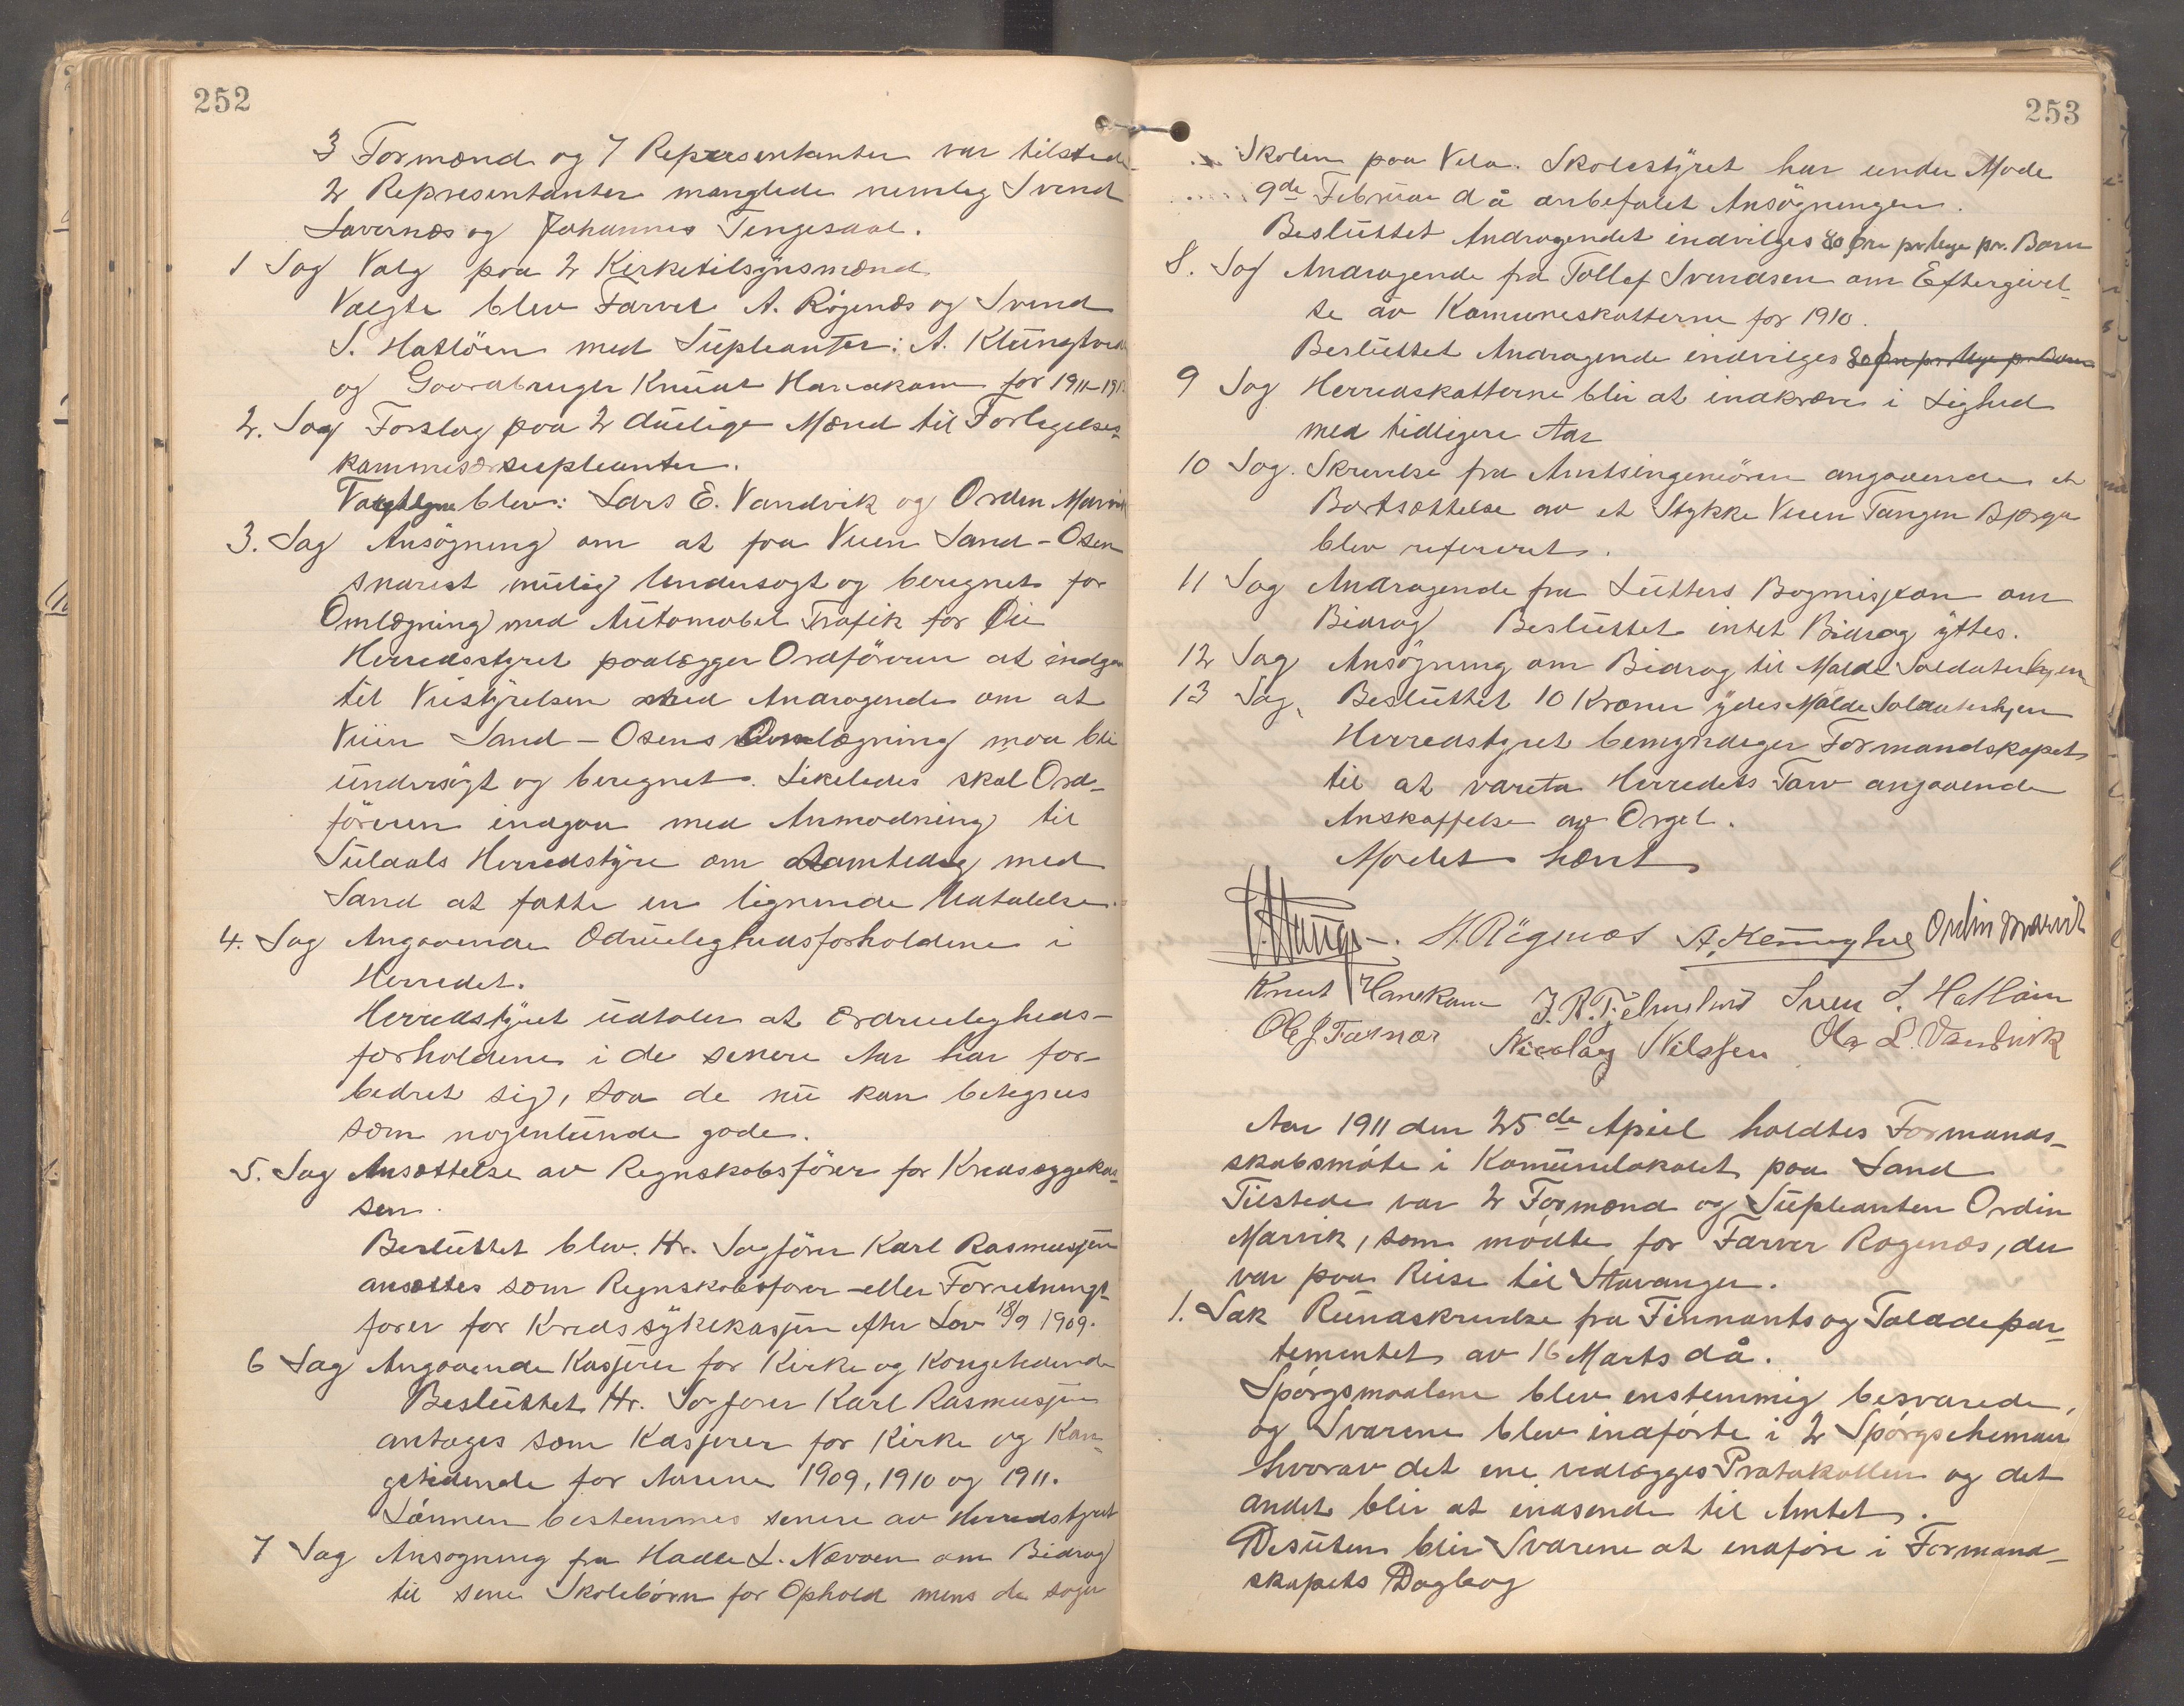 252
3 Formænd og 7 Repræsentanter var tilstede
2 Repræsentanter manglede nemlig Svend
Lovernæs og Johannes Tengesdal.
1 Sag Valg paa 2 Kirketilsynsmænd
Valgte blev Farver A. Røgenæs og Svend
S. Hatløen med Supleanter: A. Klungtveit
og Gaardbruger Knudt Hanakam for 1911-191
2. Sag Forslag paa 2 duelige Mænd til Forligelses-
kommisærsupleanter.
Valgte blev: Lars E. Vandvik og Ordin Marvik
3. Sag Ansøgning om at faa Veien Sand-Osen
snarest mulig Undersøgt og beregnet for
Omlægning med Automobel Trafik for Øie
Herredsstyret paalægger Ordføreren at indgaa
til Veistyrelsen med Andragende om at
Veien Sand-Osens Omlægning maa bli
undersøgt og beregnet. Likeledes skal Ord-
føreren indgaa med Anmodning til
Suldals Herredstyre om samtidig med
Sand at fatte en lignende Uttalelse.
4. Sag Angaaende Ædrueligheds­forholdene i
Herredet.
Herredstyret udtaler at Ædrueligheds-
forholdene i de senere Aar har for-
bedret sig, saa de nu kan betegnes
som nogenlunde gode.
5. Sag Ansættelse av Regnskabsfører for Kredssygekas-
sen.
Besluttet blev. Hr. Sagfører Karl Rasmussen
ansættes som Regnskabsfører eller Forretnings-
fører for Kredssykekassen efter Lov 18/9 1909.
6 Sag Angaaende Kasjerer for Kirke og Kongetiende
Besluttet Hr. Sagfører Karl Rasmussen
antages som Kasjerer for Kirke og Kon-
getiende for Aarene 1909, 1910 og 1911.
Lønnen bestemmes senere av Herredstyret
7 Sag Ansøgning fra Hadle L. Nævøen om Bidrag
til sine Skolebørn for Ophold mens de søger
253
Skolen paa Vela. Skolestyret har under Møde
9de Februar då anbefalet Ansøgningen.
Besluttet Andragendet indvilges 80 øre pr Uge pr. Barn
8. Sag Andragende fra Tollef Svendsen om Eftergivel-
se av Komuneskatterne for 1910.
Besluttet Andragende indvilges 80 øre pr Uge pr. Barn
9 Sag Herredskatterne blir at indkræve i Lighed
med tidligere Aar
10 Sag. Skrivelse fra Amtsingeniøren angaaende et
Bortsættelse av et Stykke Veien Tangen Bjerga
blev refereret.
11 Sag Andragende fra Luthers Bogmisjon om
Bidrag Besluttet intet Bidrag yttes.
12 Sag Ansøgning om Bidrag til Malde Soldaterhjem
13 Sag. Besluttet 10 Kroner ydes Malde Soldaterhjem
Herredstyret bemyndiger Formandskapet
til at vareta Herredets Tarv angaaende
Anskaffelse av Orgel.
Mødet hævet
A. Røgenæs A. Klungtveit Ordin Marvik
Knut Hanakam J. R. Fjelmslind Sven S. Hatløin
Ole J Fatnæs Nicolay Nilssen Ola L. Vandvik
Aar 1911 den 25de April holdtes Formands-
skabsmøte i Komunelokalet paa Sand
Tilstede var 2 Formænd og Supleanten Ordin
Marvik, som mødte for Farver Røgenæs, der
var paa Reise til Stavanger.
1. Sak Rundskrivelse fra Finnants og Tolddepar-
tementet av 16 Marts då.
Spørgsmaalene blev enstemmig besvarede,
og Svarene blev indførte i 2 Spørgschemaer
hvorav det ene vedlægges Protokollen og det
andet blir at indsende til Amtet.
Desuten blir Svarene at indføre i Formand-
skapets Dagbog